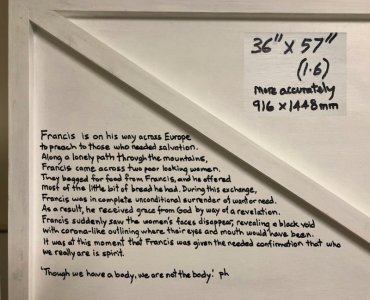 36" X 57"
(1.6)
more accurately
916 x 1448mm
Francis is on his way across Europe
to preach to those who needed salvation.
Along a lonely path through the mountains,
Francis came across two poor looking women.
They begged for food from Francis, and he offered
most of the little bit of bread he had. During this exchange,
Francis was in complete unconditional surrender of want or need.
As a result, he received grace from God by way of a revelation.
Francis suddenly saw the women's faces disappear, revealing a black void
with corona-like outlining where their eyes and mouth would have been.
It was at this moment that Francis was given the needed confirmation that who
we really are is spirit.
'Though we have a body, we are not the body.' ph